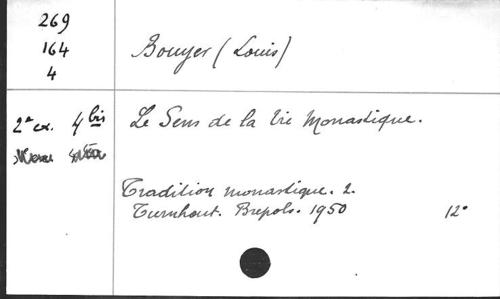 269
164
4
Bouyer (Louis)
2ª ex. 4 bis
Le Sens de la Vie Monastique.
Tradition monastique. 2.
Turnhout. Brepols. 1950 12°